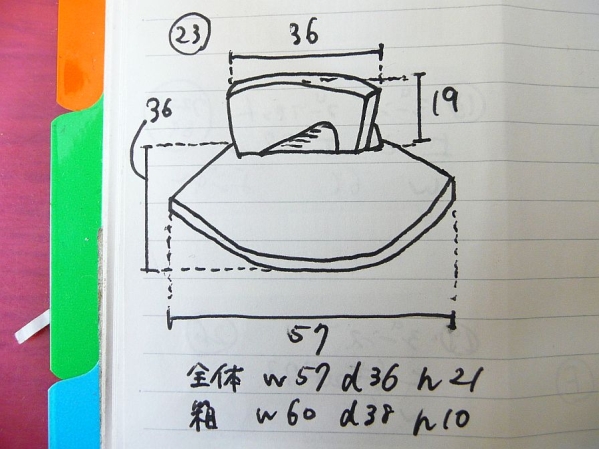 23
36
19
36
57
全体 w57 d36 h21
箱 w60 d38 h10